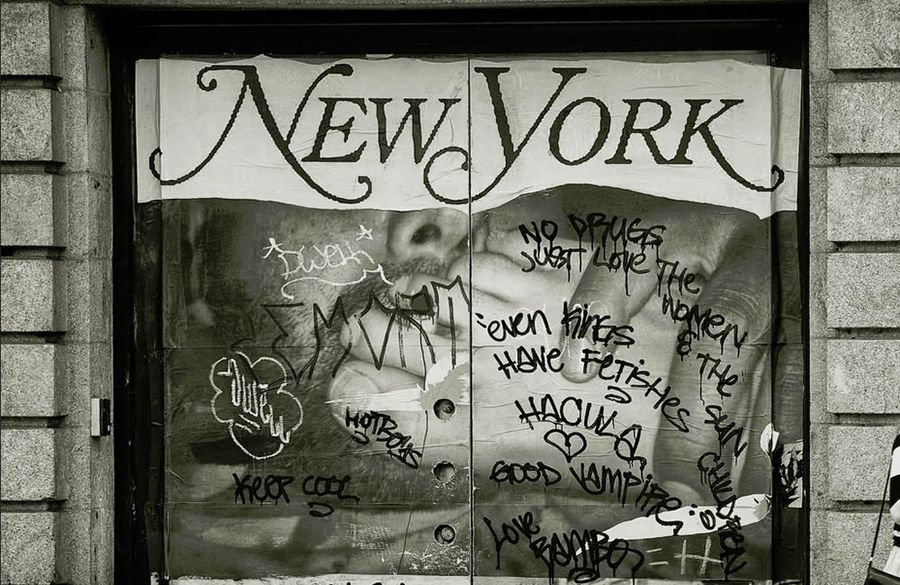 NEW YORK
NO DRUGS
JUST LOVE THE
WOMEN
& THE
SUN
CHILDREN
"EVEN KINGS
HAVE FETISHES
HACULA
GOOD VAMPIRE
LOVE
RAMBO
HOTBOYS
KEEP COOL